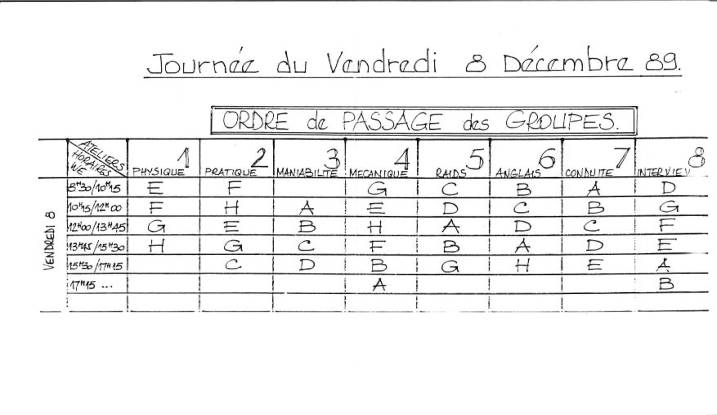 Journée du Vendredi 8 Décembre 89.
ORDRE de PASSAGE des GROUPES.
ATELIERS HORAIRES WE 1 PHYSIQUE 2 PRATIQUE 3 MANIABILITE 4 MECANIQUE 5 RAIDS 6 ANGLAIS 7 CONDUITE 8 INTERVIEV
VENDREDI 8
8H30/10H15 E F G C B A D
10H15/12H00 F H A E D C B G
12H00/13H45 G E B H A D C F
13H45/15H30 H G C F B A D E
15H30/17H15 C D B G H E A
17H15 ... A B